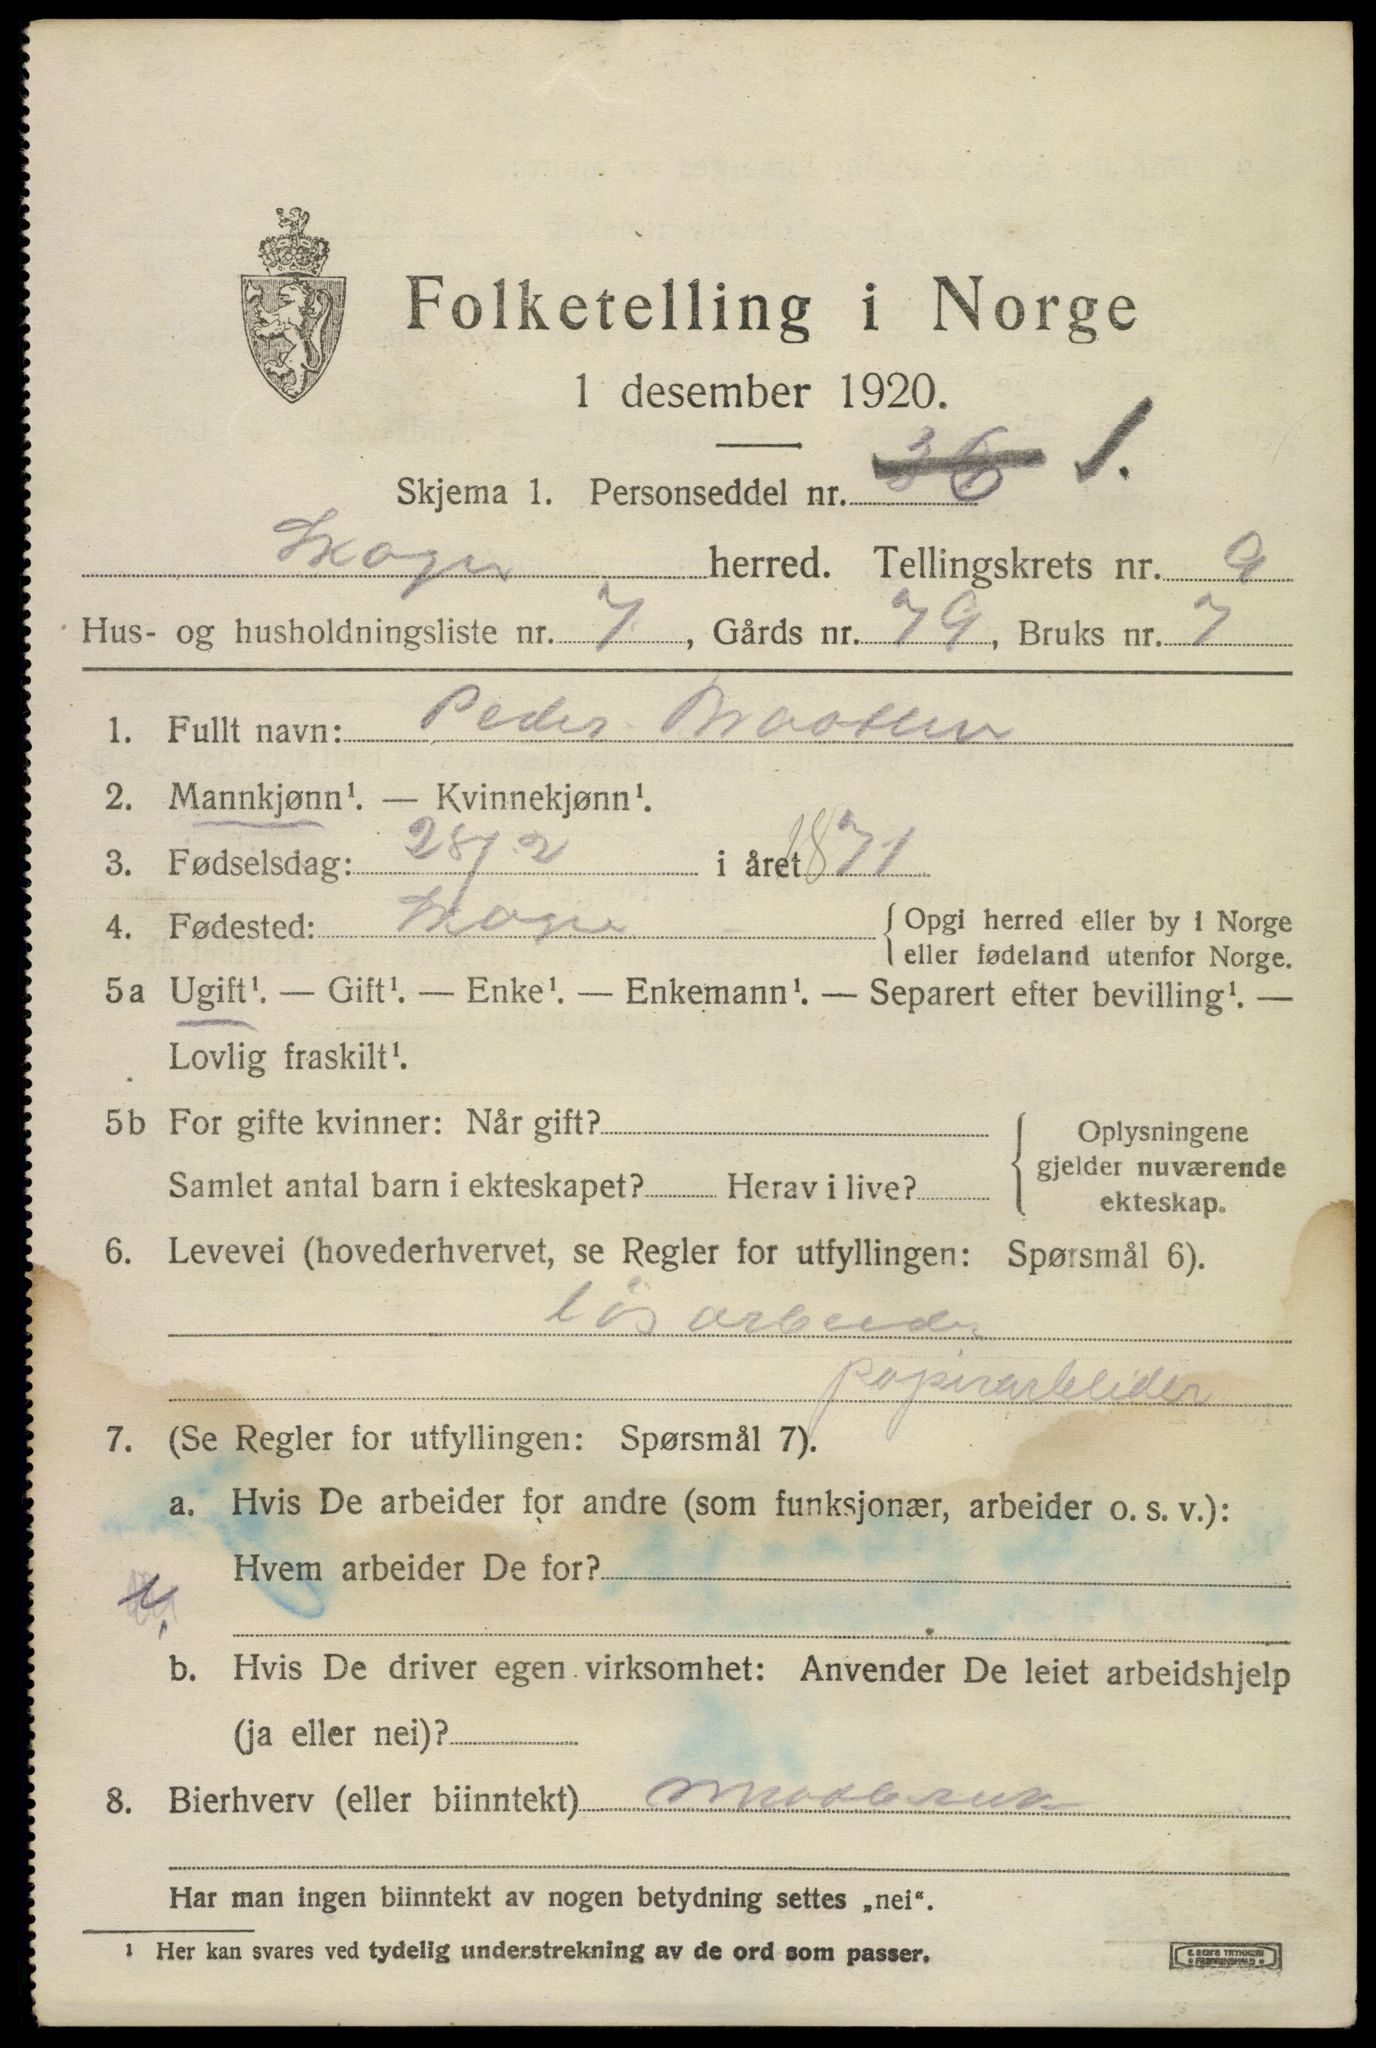 Folketelling i Norge
1 desember 1920.
Skjema 1. Personseddel nr. 36 1.
Skoger herred. Tellingskrets nr. 9
Hus- og husholdningsliste nr. 7, Gårds nr. 79, Bruks nr. 7
1. Fullt navn: Peder Braaten
2. Mannkjønn¹. — Kvinnekjønn¹.
3. Fødselsdag: 28/2 i året 1871
4. Fødested: Skoger { Opgi herred eller by i Norge
eller fødeland utenfor Norge.
5a Ugift¹. — Gift¹. — Enke¹. — Enkemann¹. — Separert efter bevilling¹. —
Lovlig fraskilt¹.
5b For gifte kvinner: Når gift?
Samlet antal barn i ekteskapet? Herav i live?
Oplysningene
gjelder nuværende
ekteskap.
6. Levevei (hovederhvervet, se Regler for utfyllingen: Spørsmål 6).
løsarbeider
papirarbeider
7. (Se Regler for utfyllingen: Spørsmål 7).
a. Hvis De arbeider for andre (som funksjonær, arbeider o. s. v.):
Hvem arbeider De for?
b. Hvis De driver egen virksomhet: Anvender De leiet arbeidshjelp
(ja eller nei)?
8. Bierhverv (eller biinntekt) smaabruk
Har man ingen biinntekt av nogen betydning settes „nei“.
¹ Her kan svares ved tydelig understrekning av de ord som passer.
E. SEM'S TRYKKERI
FREDRIKSHALD